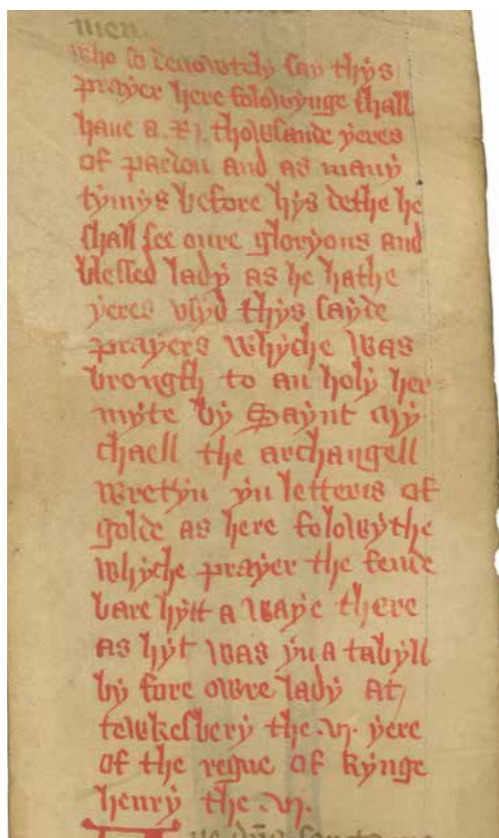 men.
who so deuowtely say thys
prayer here folowynge shall
haue a .xj. thowsande yeres
of pardon and as many
tymys before hys dethe he
shall see oure gloryous and
blessed lady as he hathe
yeres vsyd thys sayde
prayers whyche was
brougth to an holy her
myte by Saynt my
chaell the archangell
wretyn yn letters of
golde as here folowythe
whyche prayer the fende
bare hytt a waye there
as hyt was yn a tabyll
by fore owre lady at
tewkesbery the .vj. yere
of the regne of kynge
henry the .vj.